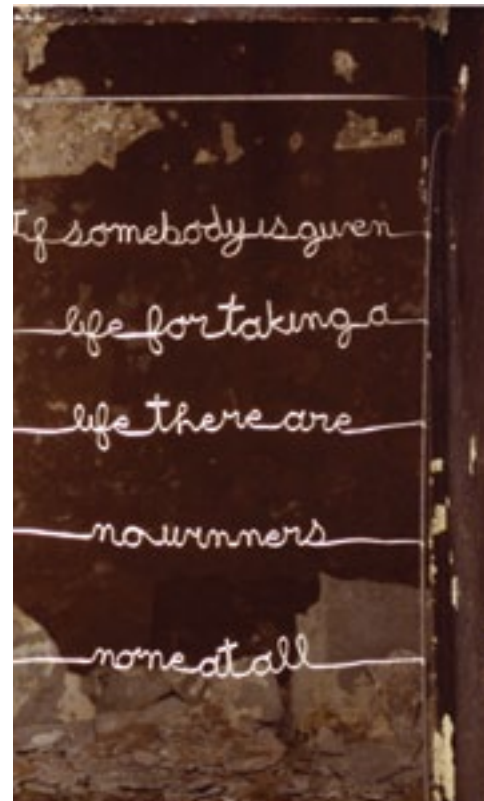 If somebody is given
life for taking a
life there are
no winners
none at all